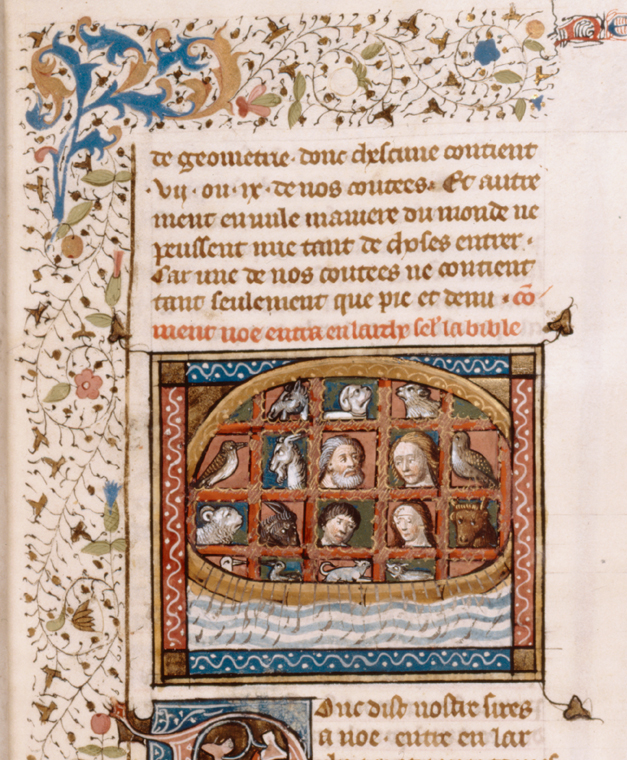 de geometrie · donc chascune contient
· vij · ou · ix · de nos coutees · Et autre
ment en nule maniere du monde ne
peussent mie tant de choses entrer ·
Car une de nos coutees ne contient
tant seulement que pie et demi · cō
ment noe entra en larche sel' la bible
Donc dist nostre sires
a noe · entre en lar